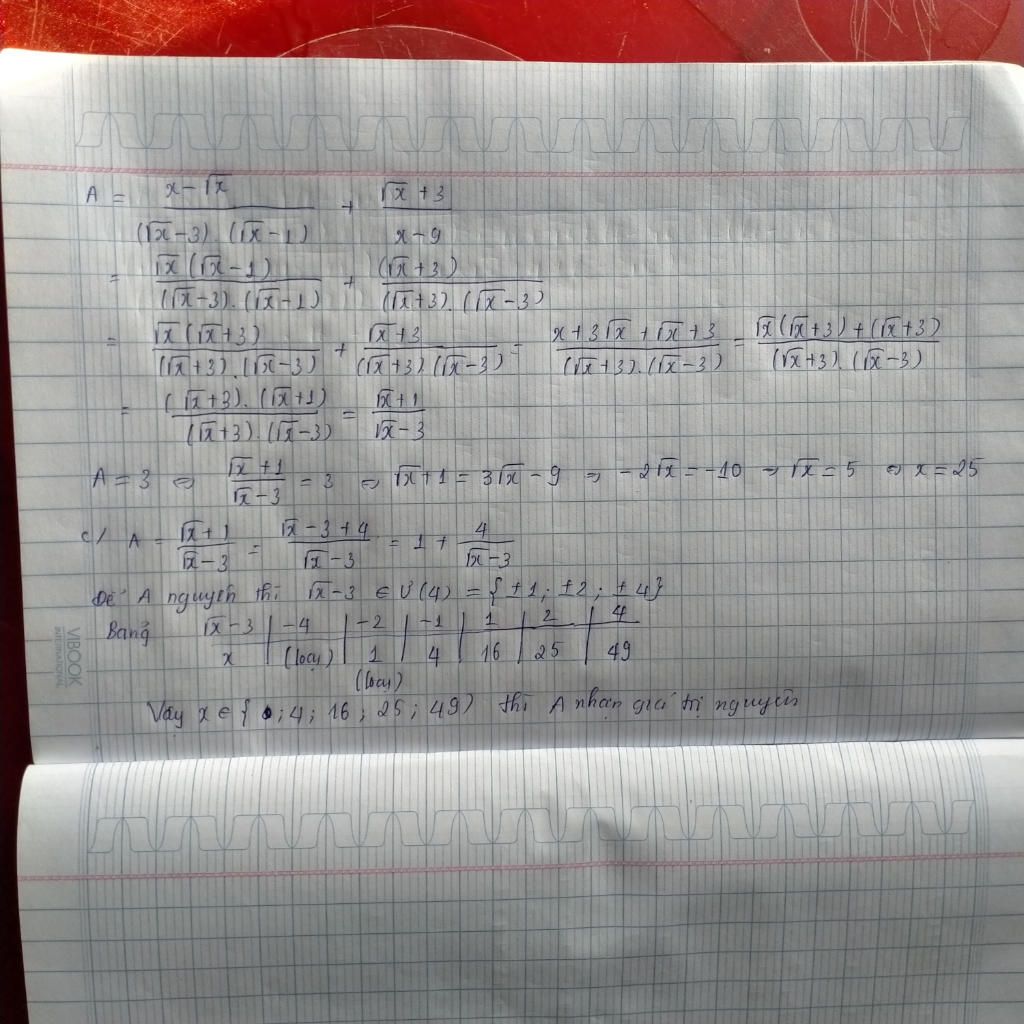 A = (x - √x)/((√x - 3).(√x - 1)) + (√x + 3)/(x - 9)
= (√x(√x - 1))/((√x - 3).(√x - 1)) + ((√x + 3))/((√x + 3).(√x - 3))
= (√x(√x + 3))/((√x + 3).(√x - 3)) + (√x + 3)/((√x + 3)(√x - 3)) = (x + 3√x + √x + 3)/((√x + 3).(√x - 3)) = (√x(√x + 3) + (√x + 3))/((√x + 3).(√x - 3))
= ((√x + 3).(√x + 1))/((√x + 3).(√x - 3)) = (√x + 1)/(√x - 3)
A = 3 ⇔ (√x + 1)/(√x - 3) = 3 ⇔ √x + 1 = 3√x - 9 ⇔ -2√x = -10 ⇔ √x = 5 ⇔ x = 25
c/ A = (√x + 1)/(√x - 3) = (√x - 3 + 4)/(√x - 3) = 1 + 4/(√x - 3)
Để A nguyên thì √x - 3 ∈ Ư(4) = {±1; ±2; ±4}
Bảng √x - 3 | -4 | -2 | -1 | 1 | 2 | 4
x | (loại) | 1 | 4 | 16 | 25 | 49
(loại)
Vậy x ∈ {; 4; 16; 25; 49) thì A nhận giá trị nguyên
VIBOOK
INTERNATIONAL